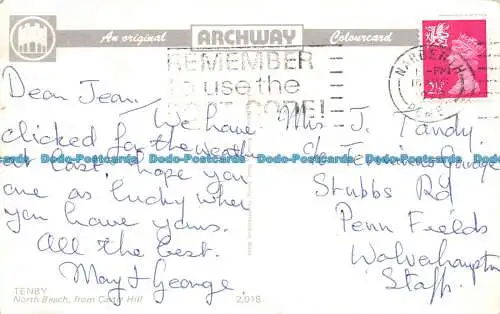 An original ARCHWAY Colourcard
REMEMBER
to use the
POST CODE!
NARBERTH
PM
2½P
Dear Jean, We have
clicked for the weather
at last. hope you
are as lucky when
you have yours.
All the best.
May & George.
Mrs J. Tandy.
Stubbs Rd
Penn Fields
Wolverhampton
Staffs.
Dodo-Postcards Dodo-Postcards Dodo-Postcards Dodo-Postcards
TENBY
North Beach, from Castle Hill
2,018